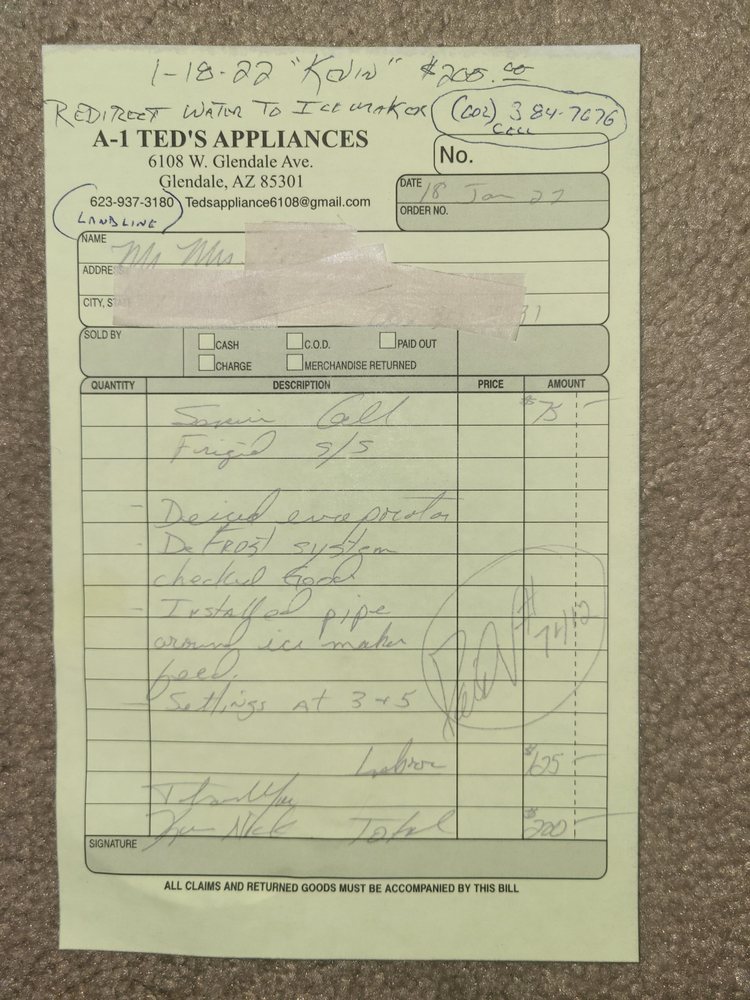 1-18-22 "KEVIN" $200.00
REDIRECT WATER TO ICE MAKER (602) 384-7676
CELL
A-1 TED'S APPLIANCES
6108 W. Glendale Ave.
Glendale, AZ 85301
623-937-3180 Tedsappliance6108@gmail.com
LANDLINE
No.
DATE 18 Jan 22
ORDER NO.
NAME Mr Mrs
ADDRE
CITY, STA
SOLD BY
CASH C.O.D. PAID OUT
CHARGE MERCHANDISE RETURNED
QUANTITY DESCRIPTION PRICE AMOUNT
Service Call $75
Frigid S/S
- Deiced evaporator
- Defrost system
checked Good
- Installed pipe
around ice maker
feed.
- Settings at 3 + 5
Paid # 7412
Labor $125
Thank You
Nick Total $200
SIGNATURE
ALL CLAIMS AND RETURNED GOODS MUST BE ACCOMPANIED BY THIS BILL